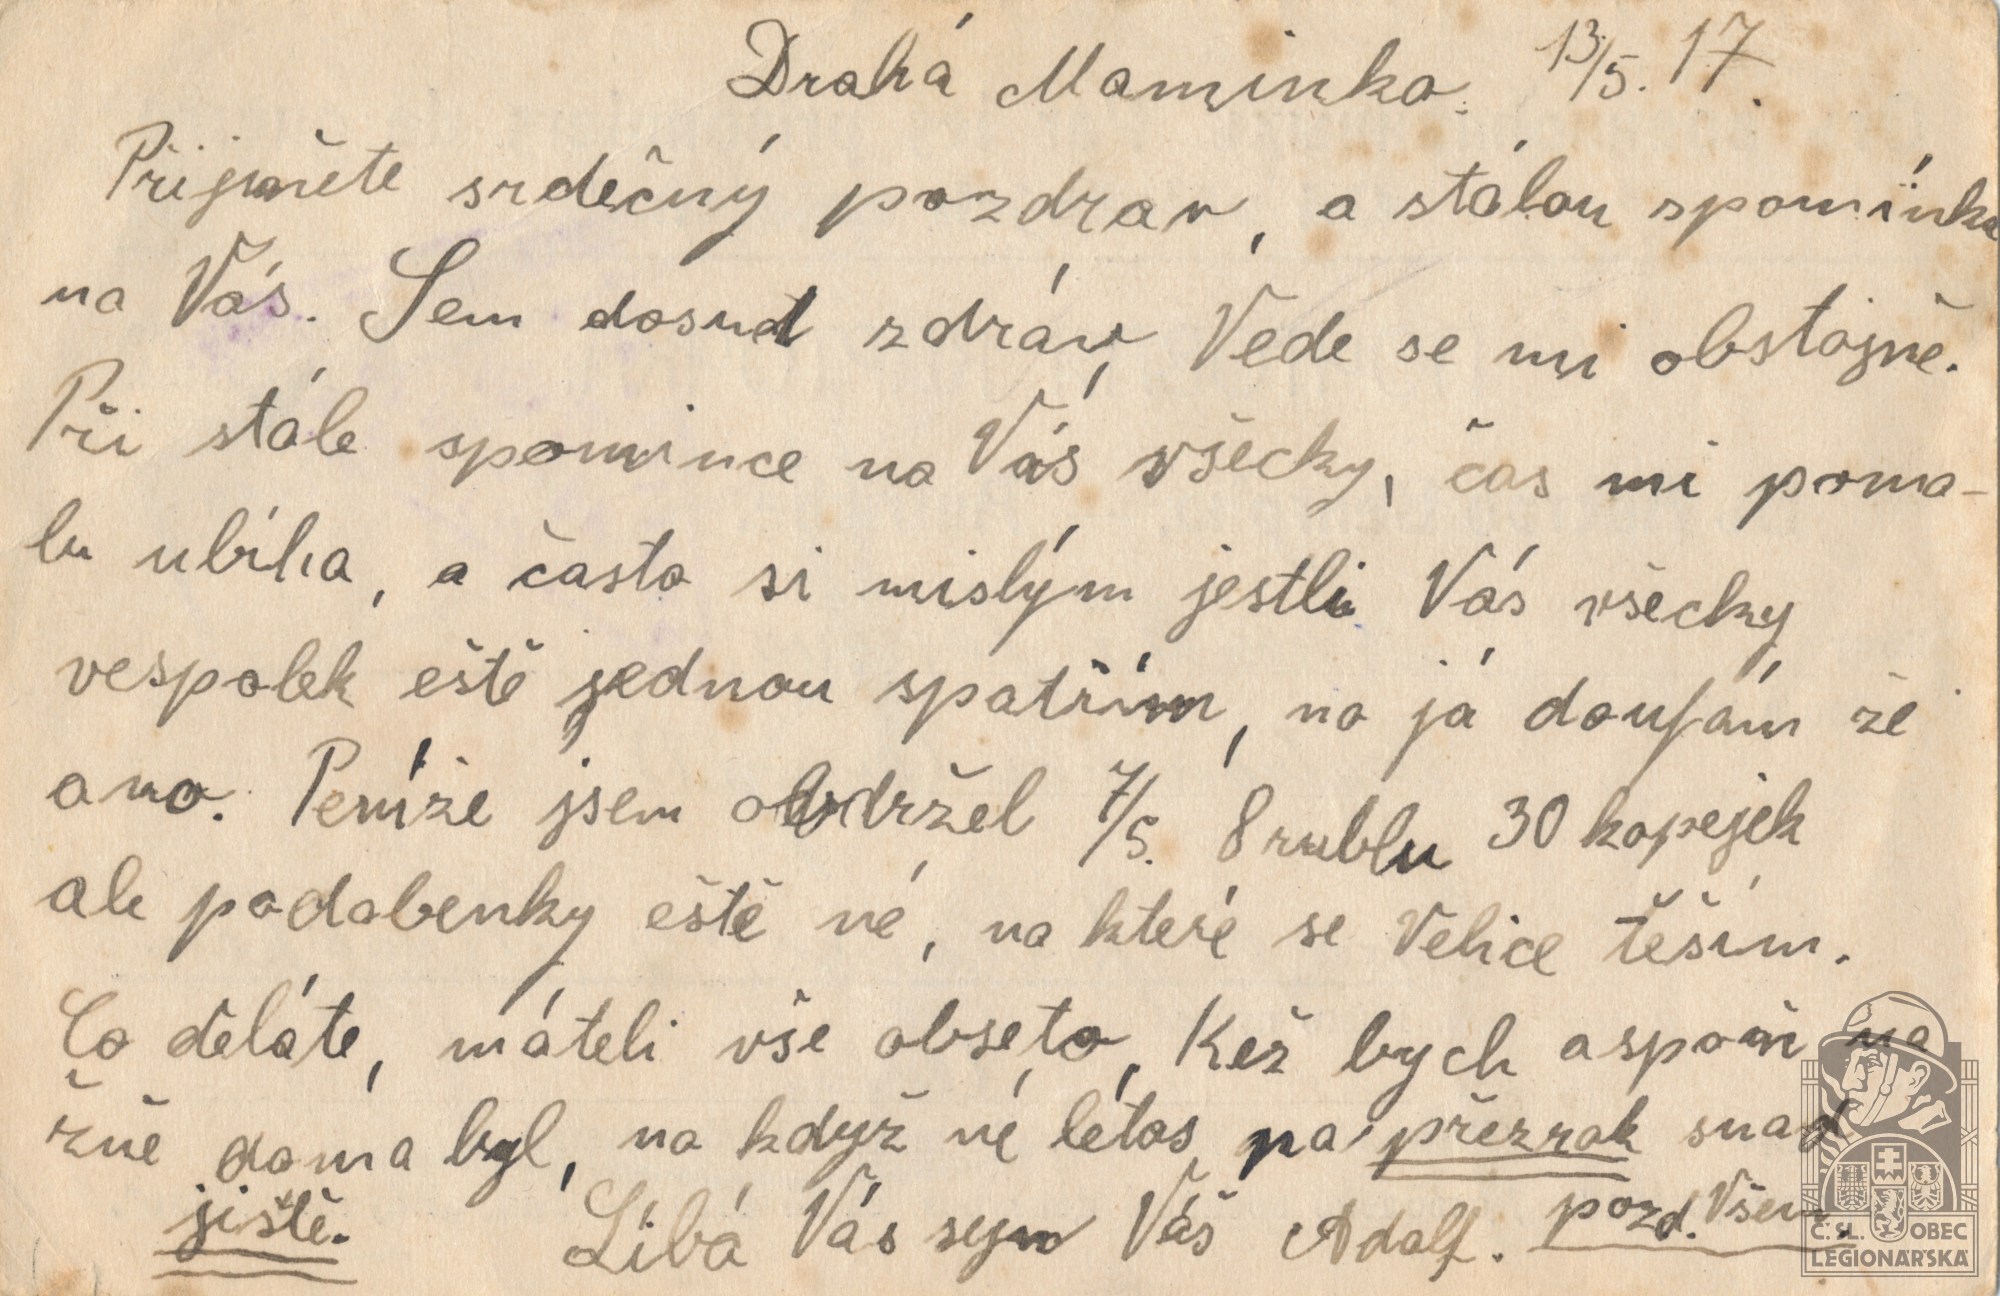 Drahá Maminko. 13/5. 17.
Přijměte srdečný pozdrav, a stálou spomínku
na Vás. Sem dosud zdráv, Vede se mi obstojně.
Při stálé spomince na Vás všecky, čas mi poma-
lu ubíha, a často si mislým jestli Vás všecky
vespolek eště jednou spatřím, no já doufám že
ano. Peníze jsem obdržel 7/5. 8 rublu 30 kopejek
ale podobenky eště né, na které se Velice těším.
Co děláte, máteli vše obseto, Kež bych aspoň na
žně doma byl, no když né létos, pa přezrok snad
jistě. Líbá Vás sejn Váš Adolf. pozd. Všem.
Č. SL. OBEC
LEGIONÁŘSKÁ